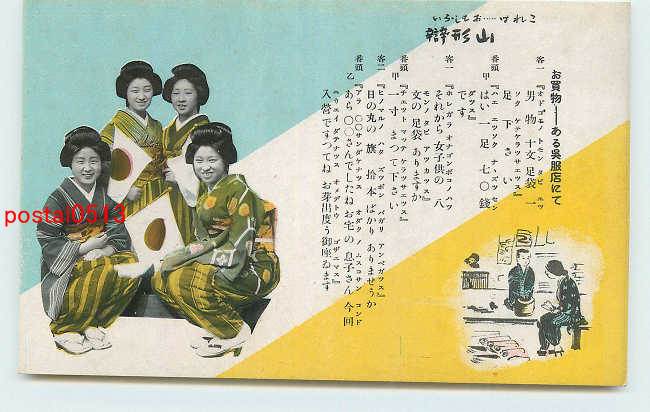 いろしてお……はれこ
山形辯
お買物――ある呉服店にて
客一
『オドゴモノ トモン タビ エッ
男物十文足袋一
ソク ケテケラッサエッス』
足下さい
番頭甲
『ハエ エッソク ナナズッセン
はい一足七〇銭
ダッス』
です
客一
『ホレカラ オナゴンボコノ ハツ
それから女子供の 八
モンノ タビ アツカッス』
文の足袋ありますか
番頭甲
『チェット マッテ ケラッサエッス』
一寸まつて下さい
客二
『ヒノマルノ ハタ ズッポン バガリ アンベガッス』
日の丸の旗 拾本ばかり ありませうか
番頭乙
『アラ 〇〇サンダケナッス オダク ノ ムスコサン コンド
あら〇〇さんでしたね お宅の 息子さん 今回
ニウエ ダデナッス オメデトウ ゴザエマス』
入營ですつてね お芽出度う御座ゐます
postal0513